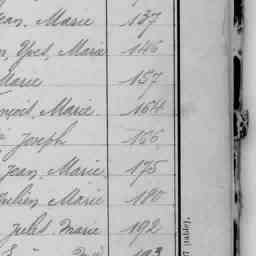 Jean, Marie 137
Yves, Marie 146
Marie 157
Marie 164
Joseph 166
Jean, Marie 175
Julien Marie 180
Marie 192
193